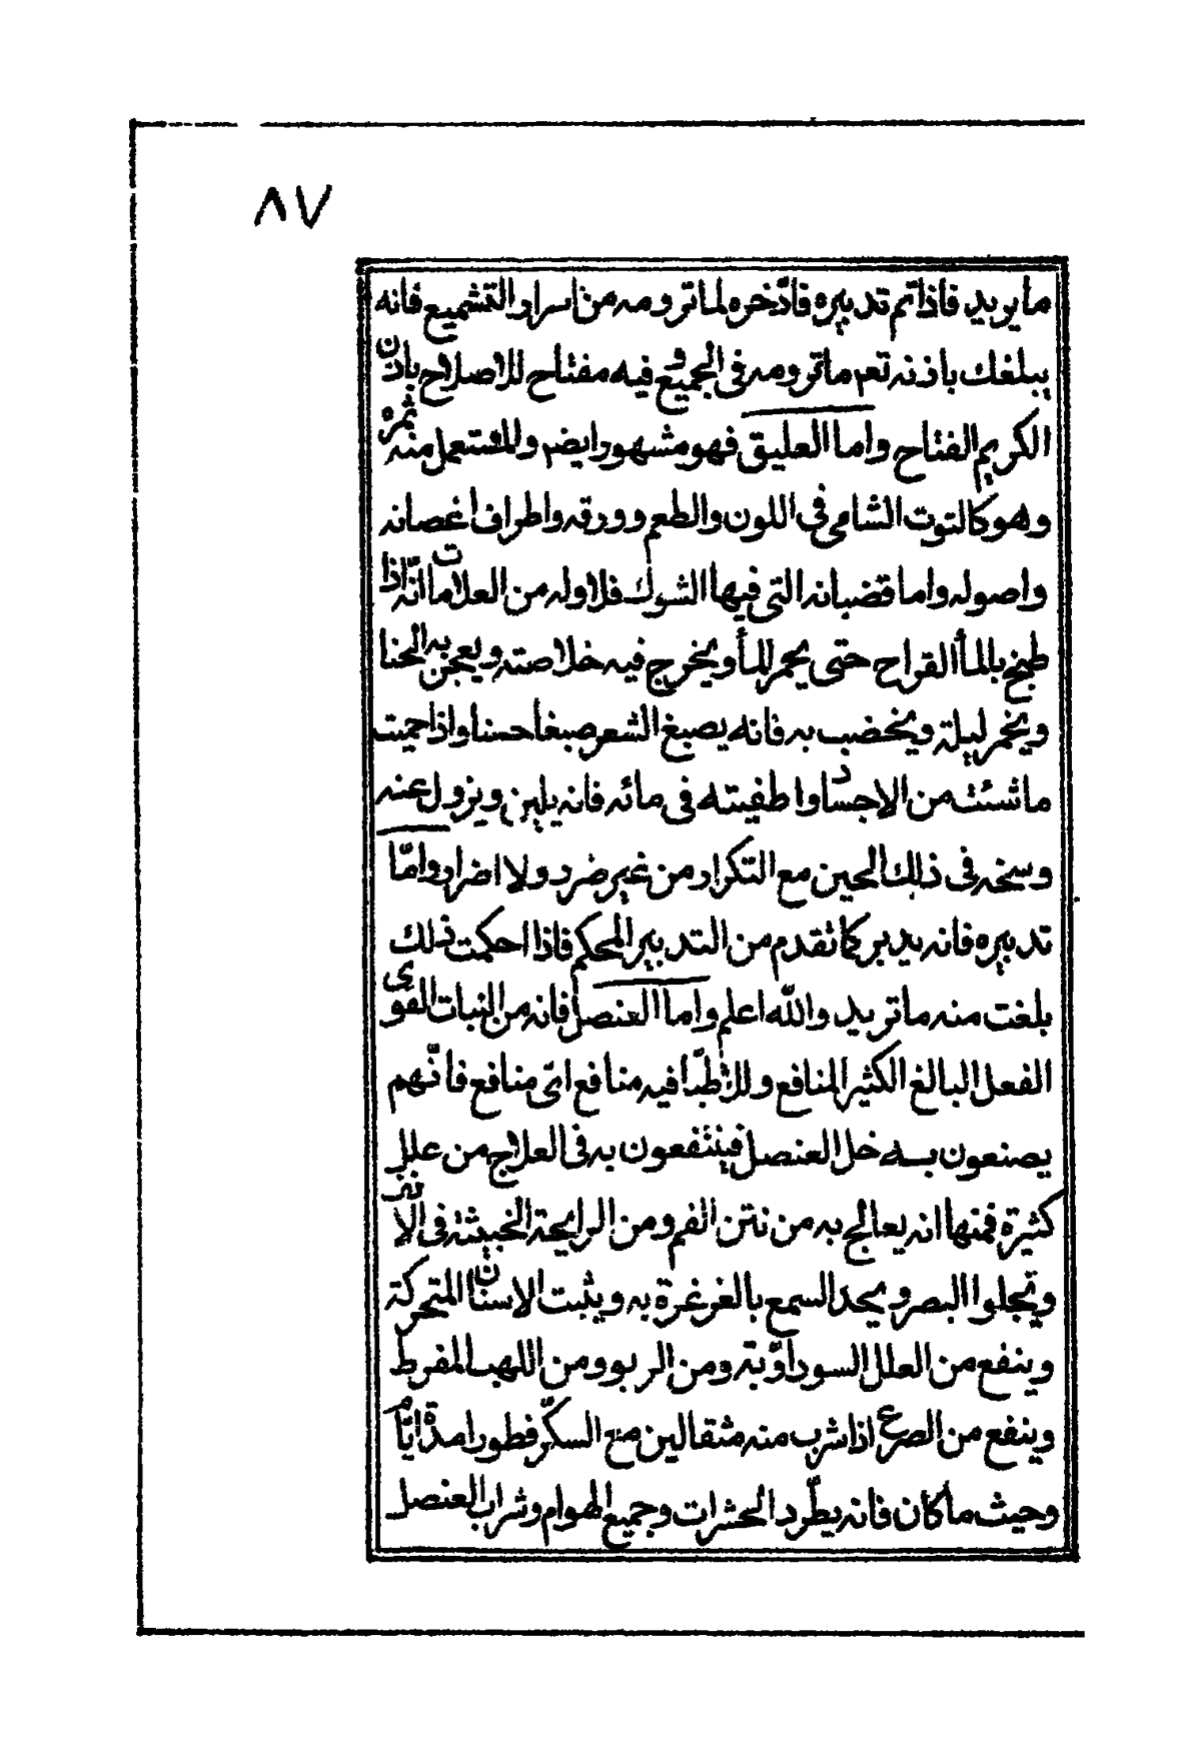 ٨٧
ما يريد فاذا تم تدبيره فادّخره لما ترومه من اسرار التشميع فانه
يبلغك باذنه تعم ماترومه فى الجميع وفيه مفتاح للاصلاح باذن
الكريم الفتاح واما العليق فهو مشهور ايضم والمستعمل منه ثمره
وهو كالتوت الشامى فى اللون والطعم وورقه واطراف اغصانه
واصوله واما قضبانه التى فيها الشوك فلاوله من العلامات انّه اذا
طبخ بالمأ القراح حتى يحمر المأ ويخرج فيه خلاصته ويعجن به الحنا
ويخمر ليلة ويخضب به فانه يصبغ الشعر صبغأ حسنا واذا حميت
ماشئت من الاجساد واطفيته فى مائه فانه يلين ويزول عنه
وسخه فى ذلك الحين مع التكرار من غير ضرر ولا اضرار وامّا
تدبيره فانه يدبر كما تقدم من التدبير المحكم فاذا احكمت ذلك
بلغت منه ما تريد والله اعلم واما العنصل فانه من النبات القوى
الفعل البالغ الكثير المنافع وللاطبّا فيه منافع اىّ منافع فانّهم
يصنعون بسه خل العنصل فينتفعون به فى العلاج من علل
كثيرة فمنها انه يعالج به من نتن الفم ومن الرايحة الخبيثة فى الانف
وتجلوا البصر ويحد السمع بالغرغرة به ويثبت الاسنان المتحركة
وينفع من العلل السوداوّية ومن الربو ومن اللهب المفرط
وينفع من الصرع اذا شرب منه مثقالين مع السكّر فطورا مدّة ايّام
وحيث ما كان فانه يطّرد الحشرات وجميع الهوام وشراب العنصل